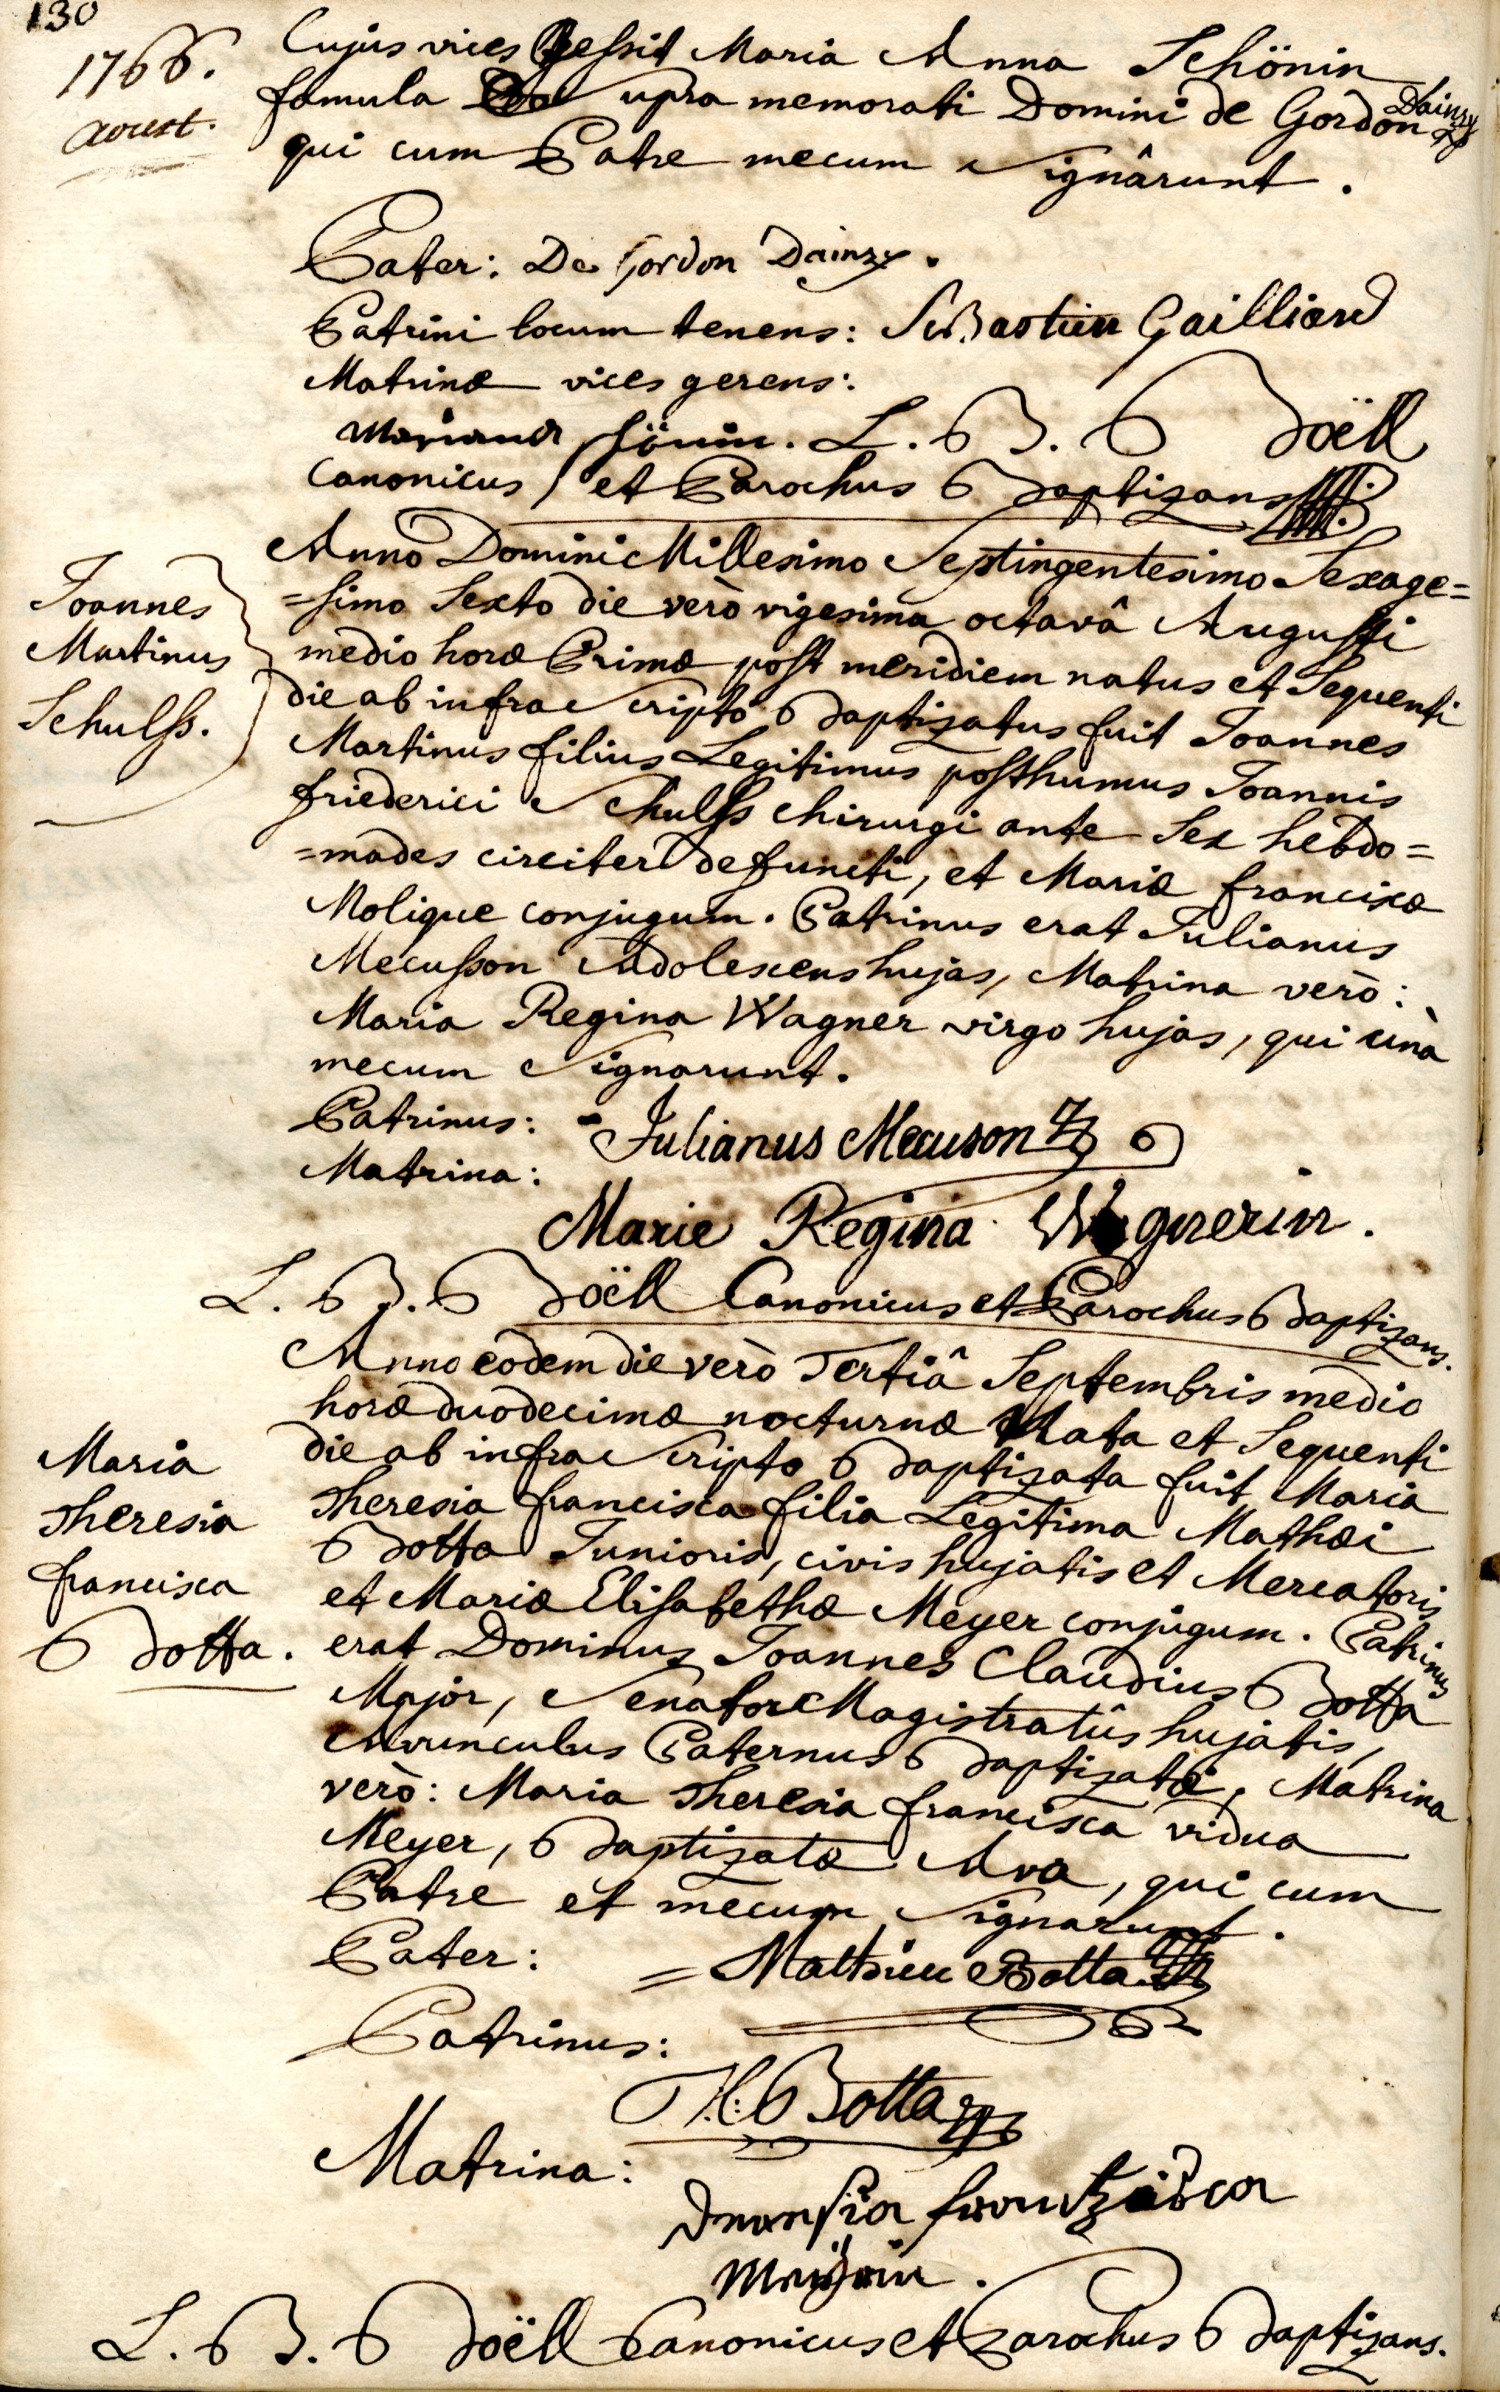 130
1766.
aoust.
Cujus vices Gessit Maria Anna Schönin
famula supra memorati Domini de Gordon Dainzy
qui cum Patre mecum Signârunt.
Pater: De Gordon Dainzy.
Patrini locum tenens: Sebastien Gailliard
Matrinæ vices gerens:
Mariana Schönin. L. B. Boëll
Canonicus et Parochus Baptizans
Joannes
Martinus
Schulss.
Anno Domini Millesimo Septingentesimo Sexage=
=simo Sexto die verò vigesima octavâ Augusti
medio horæ Primæ post meridiem natus et Sequenti
die ab infra Scripto Baptizatus fuit Joannes
Martinus filius Legitimus posthumus Joannis
friederici Schulss chirurgi ante Sex hebdo=
=mades circiter defuncti, et Mariæ franciscæ
Molique conjugum. Patrinus erat Julianus
Mecusson Adolescens hujas, Matrina verò:
Maria Regina Wagner virgo hujas, qui unà
mecum Signarunt.
Patrinus: Julianus Mecuson
Matrina:
Marie Regina Wagnerin.
L. B. Boëll Canonicus et Parochus Baptizans.
Maria
Theresia
francisca
Botta.
Anno eodem die verò Tertiâ Septembris medio
horæ duodecimæ nocturnæ Nata et Sequenti
die ab infra Scripto Baptizata fuit Maria
Theresia francisca filia Legitima Mathæi
Botta Junioris, civis hujatis et Mercatoris
et Mariæ Elisabethæ Meyer conjugum. Patrinus
erat Dominus Joannes Claudius Botta
Major, Senator Magistratûs hujatis,
Avunculus Paternus Baptizatæ, Matrina
verò: Maria Theresia francisca vidua
Meyer, Baptizatæ Ava, qui cum
Patre et mecum Signarunt.
Pater: = Mathieu Botta
Patrinus:
Botta
Matrina:
frantzisca
Meyerin.
L. B. Boëll Canonicus et Parochus Baptizans.